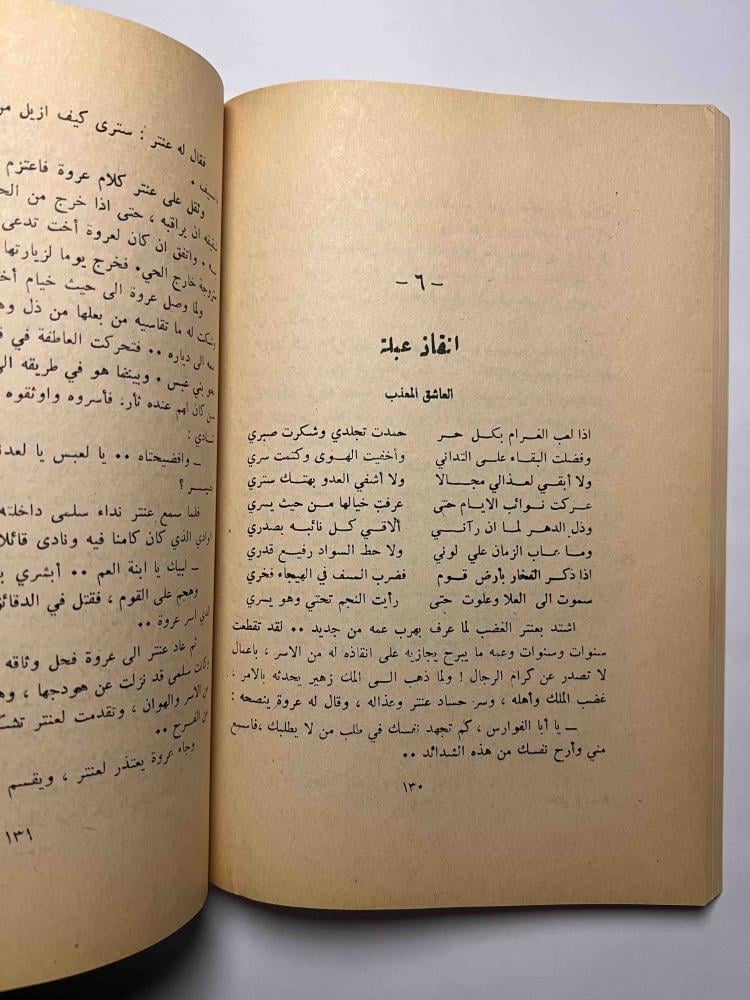 - ٦ -
انقاذ عبلة
العاشق المعذب
اذا لعب الغرام بكل حر حمدت تجلدي وشكرت صبري
وفضلت البقاء على التداني وأخفيت الهوى وكتمت سري
ولا أبقي لعذالي مجالا ولا أشفي العدو بهتك ستري
عركت نوائب الايام حتى عرفت خيالها من حيث يسري
وذل الدهر لما ان رآني ألاقي كل نائبه بصدري
وما عاب الزمان علي لوني ولا حط السواد رفيع قدري
اذا ذكر الفخار بأرض قوم فضرب السف في الهيجاء فخري
سموت الى العلا وعلوت حتى رأيت النجم تحتي وهو يسري
اشتد بعنتر الغضب لما عرف بهرب عمه من جديد ٠٠ لقد تقطعت
سنوات وسنوات وعمه ما يبرح يجازيه على انقاذه له من الاسر ، باعمال
لا تصدر عن كرام الرجال ! ولما ذهب الى الملك زهير يحدثه بالامر ،
غضب الملك وأهله ، وسر حساد عنتر وعذاله ، وقال له عروة ينصحه :
ــ يا أبا الفوارس ، كم تجهد نفسك في طلب من لا يطلبك ، فاسمع
مني وأرح نفسك من هذه الشدائد ٠٠
١٣٠
فقال له عنتر : سترى كيف ازيل
وثقل على عنتر كلام عروة فاعتزم
ان يراقبه ، حتى اذا خرج من
واتفق ان كان لعروة أخت تدعى
خارج الحي٠ فخرج يوما لزيارتها
ولما وصل عروة الى حيث خيام
وشكت له ما تقاسيه من بعلها من ذل
الى دياره ٠٠ فتحركت العاطفة في
بني عبس ٠ وبينما هو في طريقه
من كان لهم عنده ثأر٠ فأسروه واوثقوه
:
ــ وافضيحتاه ٠٠ يا لعبس يا
؟
فلما سمع عنتر نداء سلمى داخلته
الوادي الذي كان كامنا فيه ونادى قائلا
ــ لبيك يا ابنة العم ٠٠ أبشري
وهجم على القوم ، فقتل في الدقائق
اسر عروة ٠٠
ثم عاد عنتر الى عروة فحل وثاقه
وكانت سلمى قد نزلت عن هودجها ،
من الاسر والهوان ، وتقدمت لعنتر
من الفرح ٠٠
وجاء عروة يعتذر لعنتر ، ويقسم
١٣١